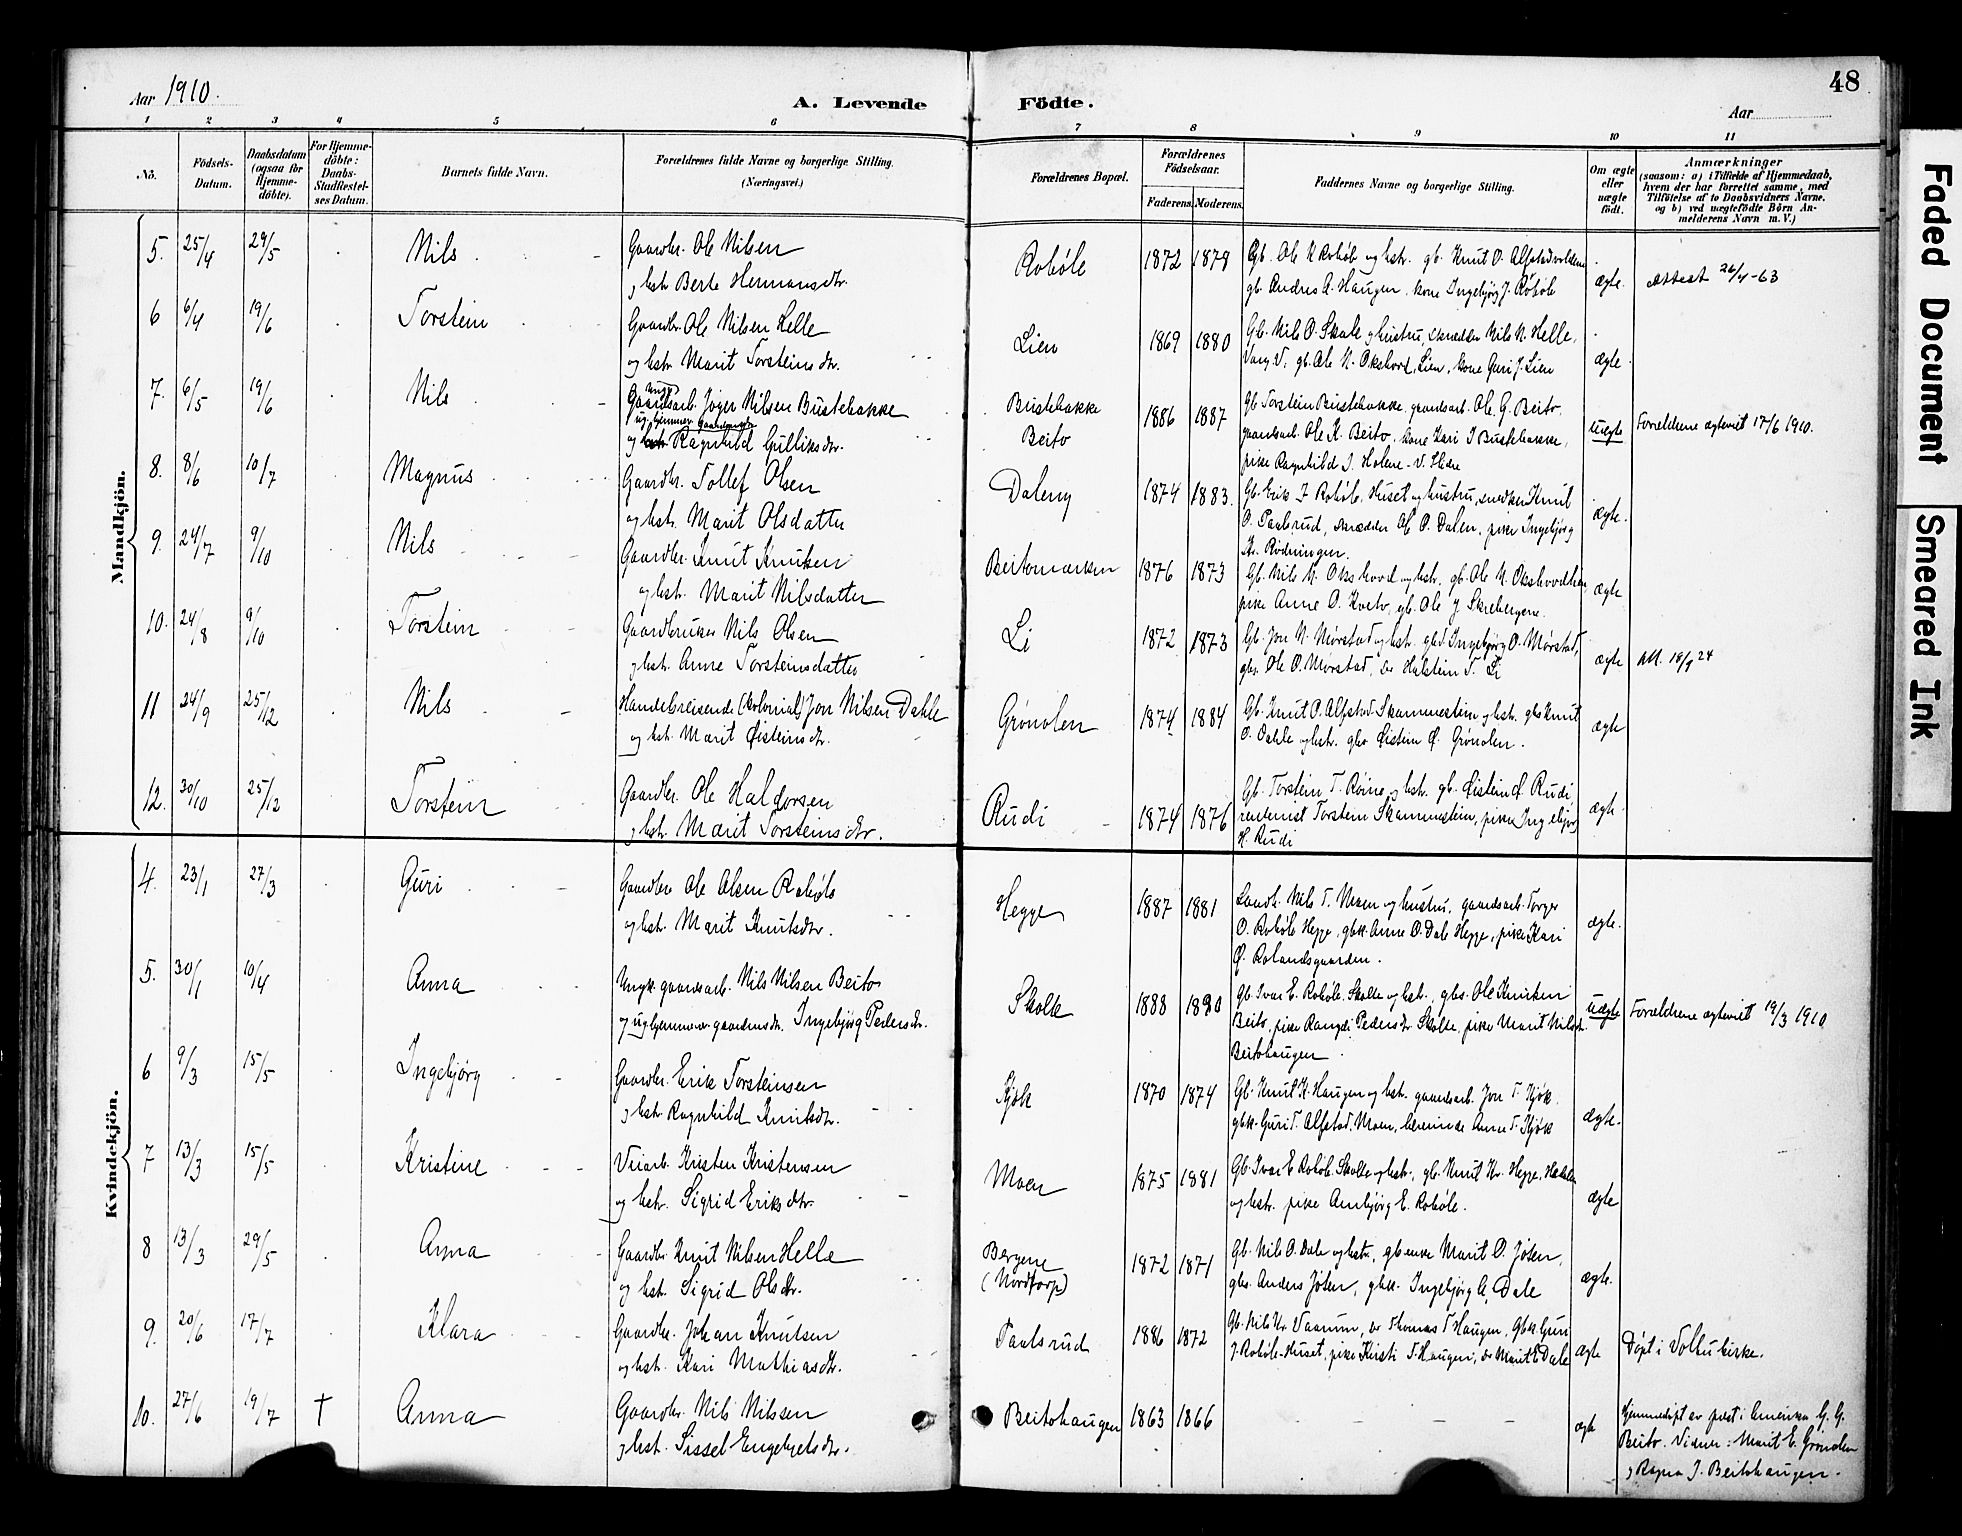 48
Aar 1910.
A. Levende Födte.
Aar
1 2 3 4 5 6 7 8 9 10 11
No.
Födsels-
Datum.
Daabsdatum
(ogsaa for
Hjemme-
döbte).
For Hjemme-
döbte:
Daabs-
Stadfæstel-
ses Datum.
Barnets fulde Navn.
Forældrenes fulde Navne og borgerlige Stilling.
(Næringsvei.)
Forældrenes Bopæl.
Forældrenes
Födselsaar.
Faderens. Moderens.
Faddernes Navne og borgerlige Stilling.
Om ægte
eller
uægte
født.
Anmærkninger
(saasom: a) i Tilfælde af Hjemmedaab,
hvem der har forrettet samme, med
Tilføielse af to Daabsvidners Navne,
og b) ved uægtefödte Börn An-
melderens Navn m. V.)
Mandkjön.
5. 25/4 29/5 Nils Gaardbr. Ole Nilsen
og hstr. Berte Hermansdtr.
Robøle 1872 1878
Gb. Ole N Robøle og hstr. gb. Knut O. Alfstadvolden
gb. Andres A. Haugen, kone Ingebjørg J. Robøle
ægte. Attest 26/4-63
6 6/4 19/6 Torstein Gaardbr. Ole Nilsen Helle
og hstr. Marit Torsteinsdtr.
Lien 1869 1880
Gb. Nils O. Skale og hustru, skrædder Nils N. Helle,
Vang V, gb. Ole N. Okshovd, Lien, kone Guri J. Lien
ægte.
7. 6/5 19/6 Nils Ungk. Gaardsarb. Joger Nilsen Bustebakke
og hjemmev. Gaardmdtr.
Ragnhild Gulliksdtr.
Bustebakke
Beito
1886 1887
Gb. Torstein Bustebakke, gaardsarb. Ole G. Beito,
gaardsarb. Ole K. Beito, kone Kari J Bustebakke,
pike Ragnhild J. Holene - V. Slidre
uægte Forældrene ægteviet 17/6 1910.
8. 8/6 10/7 Magnus Gaardbr. Tollef Olsen
og hstr. Marit Olsdatter
Daleng 1874 1883.
Gb. Erik J Robøle, Huset og hustru, snedker Knut
O. Paalsrud, skrædder Ole P. Dalen, pike Ingebjørg
Kr. Rødningen.
ægte.
9. 24/7 9/10 Nils Gaardbr. Knut Knutsen
og hstr. Marit Nilsdatter
Beitomarken 1876 1873
Gb. Nils N. Okshovd og hstr. gb. Ole N. Okshovdhan
pike Anne O. Kvetv, gb. Ole J Skrebergene.
ægte
10. 24/8 9/10 Torstein Gaardbruker Nils Olsen
og hstr. Anne Torsteinsdatter
Li 1872 1873
Gb. Jon N. Mørstad og hstr. gbd. Ingebjørg O. Mørstad,
gbs. Ole O. Mørstad, Halstein T. Li
ægte Att. 18/9 24
11 24/9 25/12 Nils Handelsreisende (kolonial) Jon Nilsen Dahle
og hstr. Marit Øisteinsdtr.
Grønolen 1874 1884
Gb. Knut O. Alfstad Skammestein og hstr. gbs Knut
O. Dahle og hstr. gbs Øistein Ø. Grønolen.
ægte
12. 30/10 25/12 Torstein Gaardbr. Ole Haldorsen
og hstr. Marit Torsteinsdtr.
Rudi 1874 1876
Gb. Torstein T. Røine og hstr. gb. Øistein Ø Rudi
rentenist Torstein Skammestein, pike Ingebjørg
H. Rudi
ægte.
Kvindekjön.
4. 23/1 27/3 Guri Gaardbr. Ole Olsen Robøle
og hstr. Marit Knutsdtr.
Hegge 1887 1881
Landh. Nils T. Moen og hustru, gaardsarb. Torger
O. Robøle Hegge, gbkk. Anne O. Dale Hegge, pike Kari
Ø. Rolandsgaarden.
ægte.
5. 30/1 10/4 Anna Ungk. gaardsarb. Nils Nilsen Beito
og ug. hjemmev. gaardmdtr. Ingebjørg Pedersdtr.
Skolte 1888 1890
Gb. Ivar E. Robøle Skolte og hstr., gbs. Ole Knutsen
Beito, pike Rangdi Pedersdtr Skolte, pike Marit Nilsdtr.
Beitohaugen
uægte Forældrene ægteviet 19/3 1910
6 9/3 15/5 Ingebjørg Gaardbr. Erik Torsteinsen
og hstr. Ragnhild Knutsdtr.
Kjøk 1870 1874
Gb. Knut K. Haugen og hstr. gaardsarb. Jon T. Kjøk
gbkk. Guri T. Alfstad. Moen, lærerinde Anne T. Kjøk
ægte.
7 13/3 15/5 Kristine Veiarb. Kristen Kristensen
og hstr. Sigrid Eriksdtr.
Moen 1875 1881
Gb. Ivar E Robøle Skolte og hstr., gb. Knut Kr. Hegge,
og hstr. pike Anbjørg E. Robøle.
ægte
8 13/3 29/5 Anna Gaardbr. Knut Nilsen Helle
og hst. Sigrid Olsdtr.
Bergene
(Nordtorp)
1872 1871
Gb. Nils O. Dale og hstr., gb enke Marit O. Jøten,
gbs. Anders Jøten, gbkk. Ingebjørg A. Dale
ægte.
9. 20/6 17/7 Klara Gaardbr. Johan Knutsen
og hst. Kari Mathiasdtr.
Paalsrud 1886 1872
Gb. Nils Kr Vaarum, Thomas T Haugen, Gbkk Guri
J. Robøle-Huset, pike Kirsti T Haugen, Marit E Dale
ægte Døpt i Volbu kirke.
10. 27/6 19/7 † Anna Gaardbr. Nils Nilsen
og hst. Sissel Engebretsdtr.
Beitohaugen 1863 1866
ægte Hjemmedøpt av prest i Amerika G. G.
Beito. Vidner: Marit E. Grønolen
og Ragna J. Beitohaugen.
Faded Document
Smeared Ink